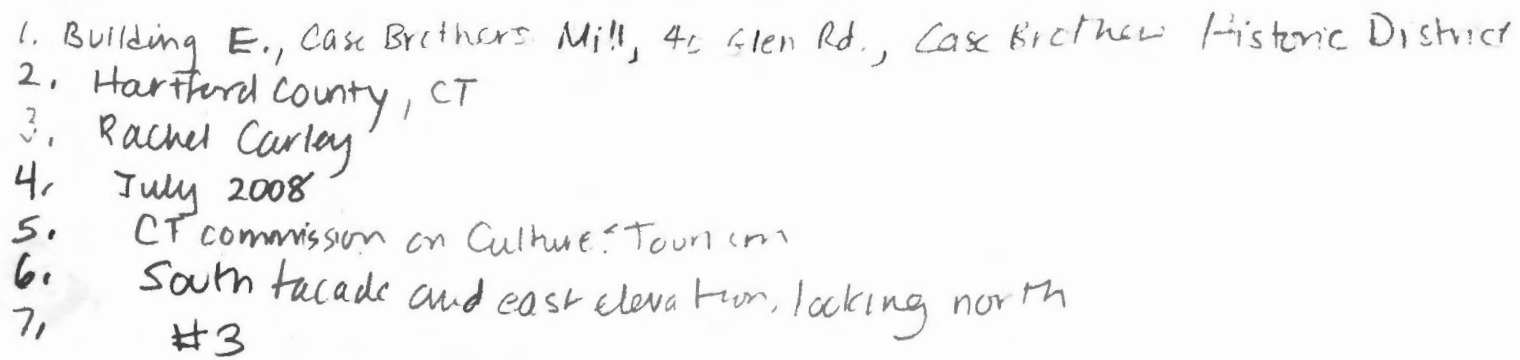 1. Building E., Case Brothers Mill, 40 Glen Rd., Case Brothers Historic District
2. Hartford County, CT
3. Rachel Carley
4. July 2008
5. CT commission on Culture & Tourism
6. South facade and east elevation, looking north
7. #3